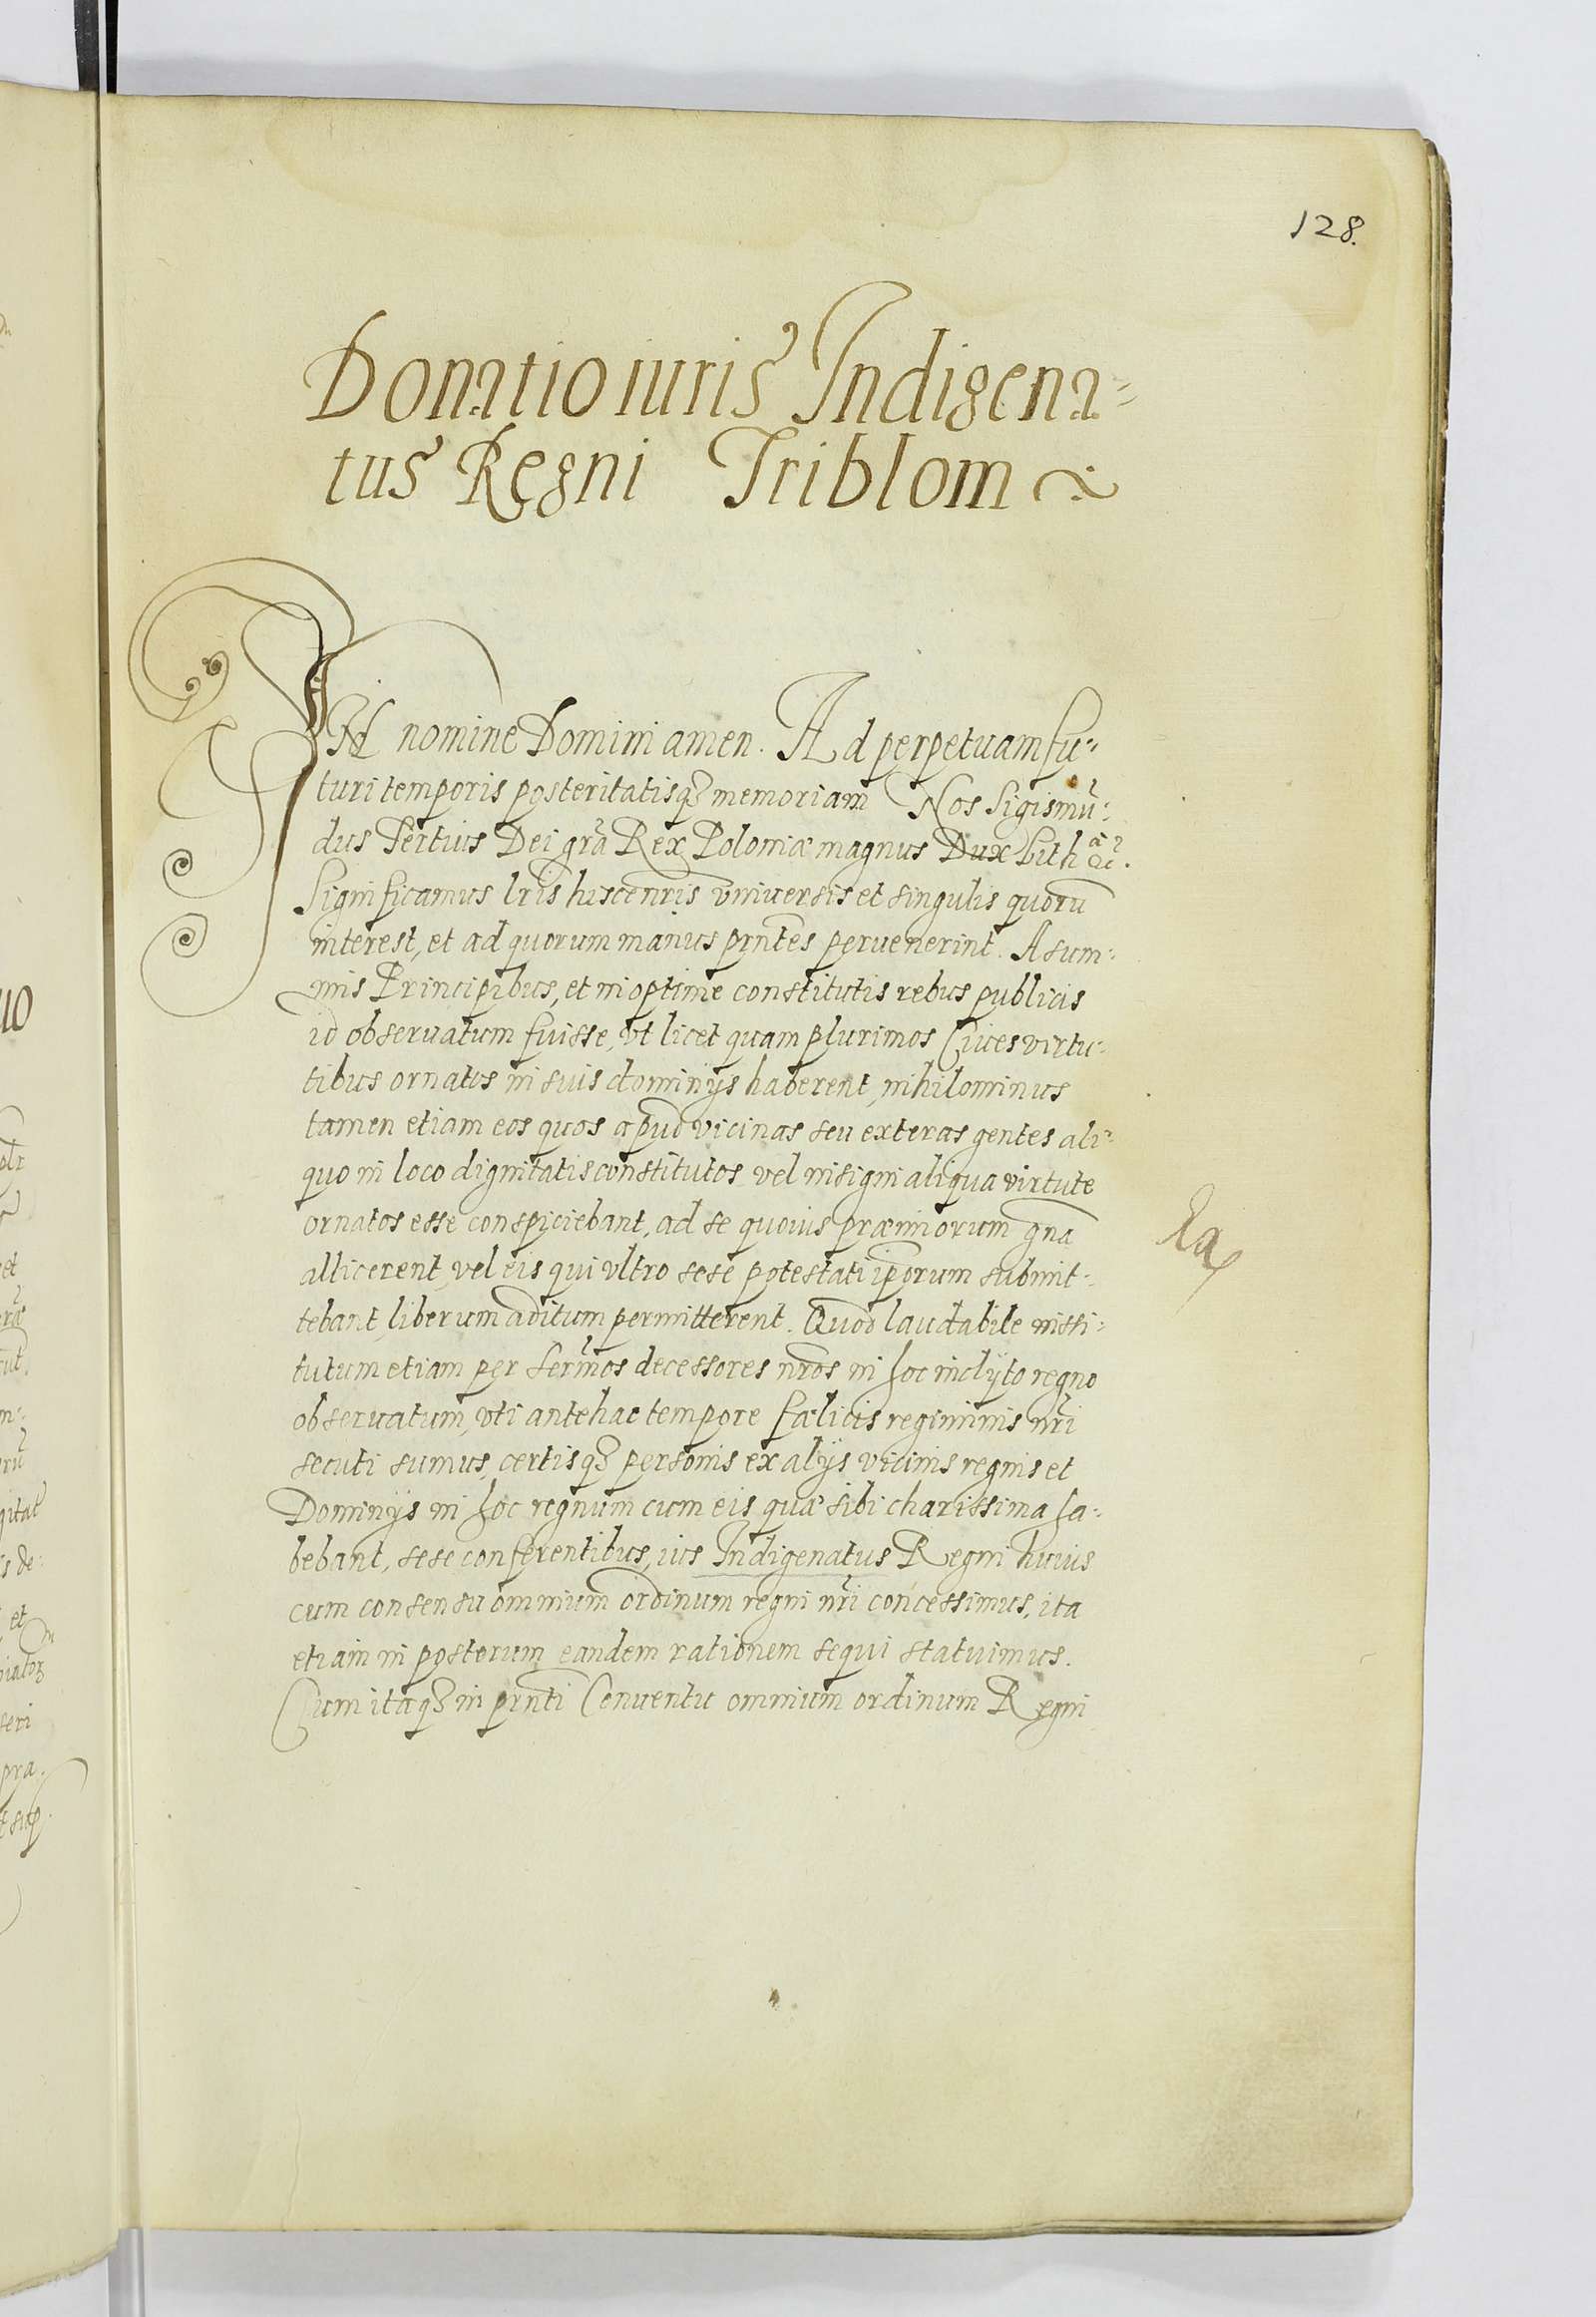 128.
Donatio iuris Indigena=
tus Regni Triblom
IN nomine Domini amen. Ad perpetuam fu=
turi temporis posteritatisq3 memoriam Nos Sigismũ:
dus Tertius Dei gr̃a Rex Poloniæ magnus Dux Lith
Significamus lr̃is hisce nr̃is vniuersis et singulis quorũ
interest, et ad quorum manus prñtes peruenerint. A sum:
mis Principibus, et in optime constitutis rebus publicis
id obseruatum fuisse, vt licet quam plurimos Ciues virtu:
tibus ornatos in suis dominijs haberent, nihilominus
tamen etiam eos quos apud vicinas seu exteras gentes ali:
quo in loco dignitatis constitutos vel insigni aliqua virtute
ornatos esse conspiciebant, ad se quouis præmiorum gña
allicerent, vel eis qui vltro sese potestati ip̃orum submit:
tebant liberum aditum permitterent. Quod laudabile insti:
tutum etiam per Serm̃os decessores nr̃os in hoc inclyto regno
obseruatum, vti antehac tempore fælicis regiminis nr̃i
secuti sumus, certisq3 personis ex alijs vicinis regnis et
Dominijs in hoc regnum cum eis quæ sibi charissima ha:
bebant, sese conferentibus, ius Indigenatus Regni huius
cum consensu omnium ordinum regni nr̃i concessimus, ita
etiam in posterum eandem rationem sequi statuimus.
Cum itaq3 in prñti Conuentu omnium ordinum Regni